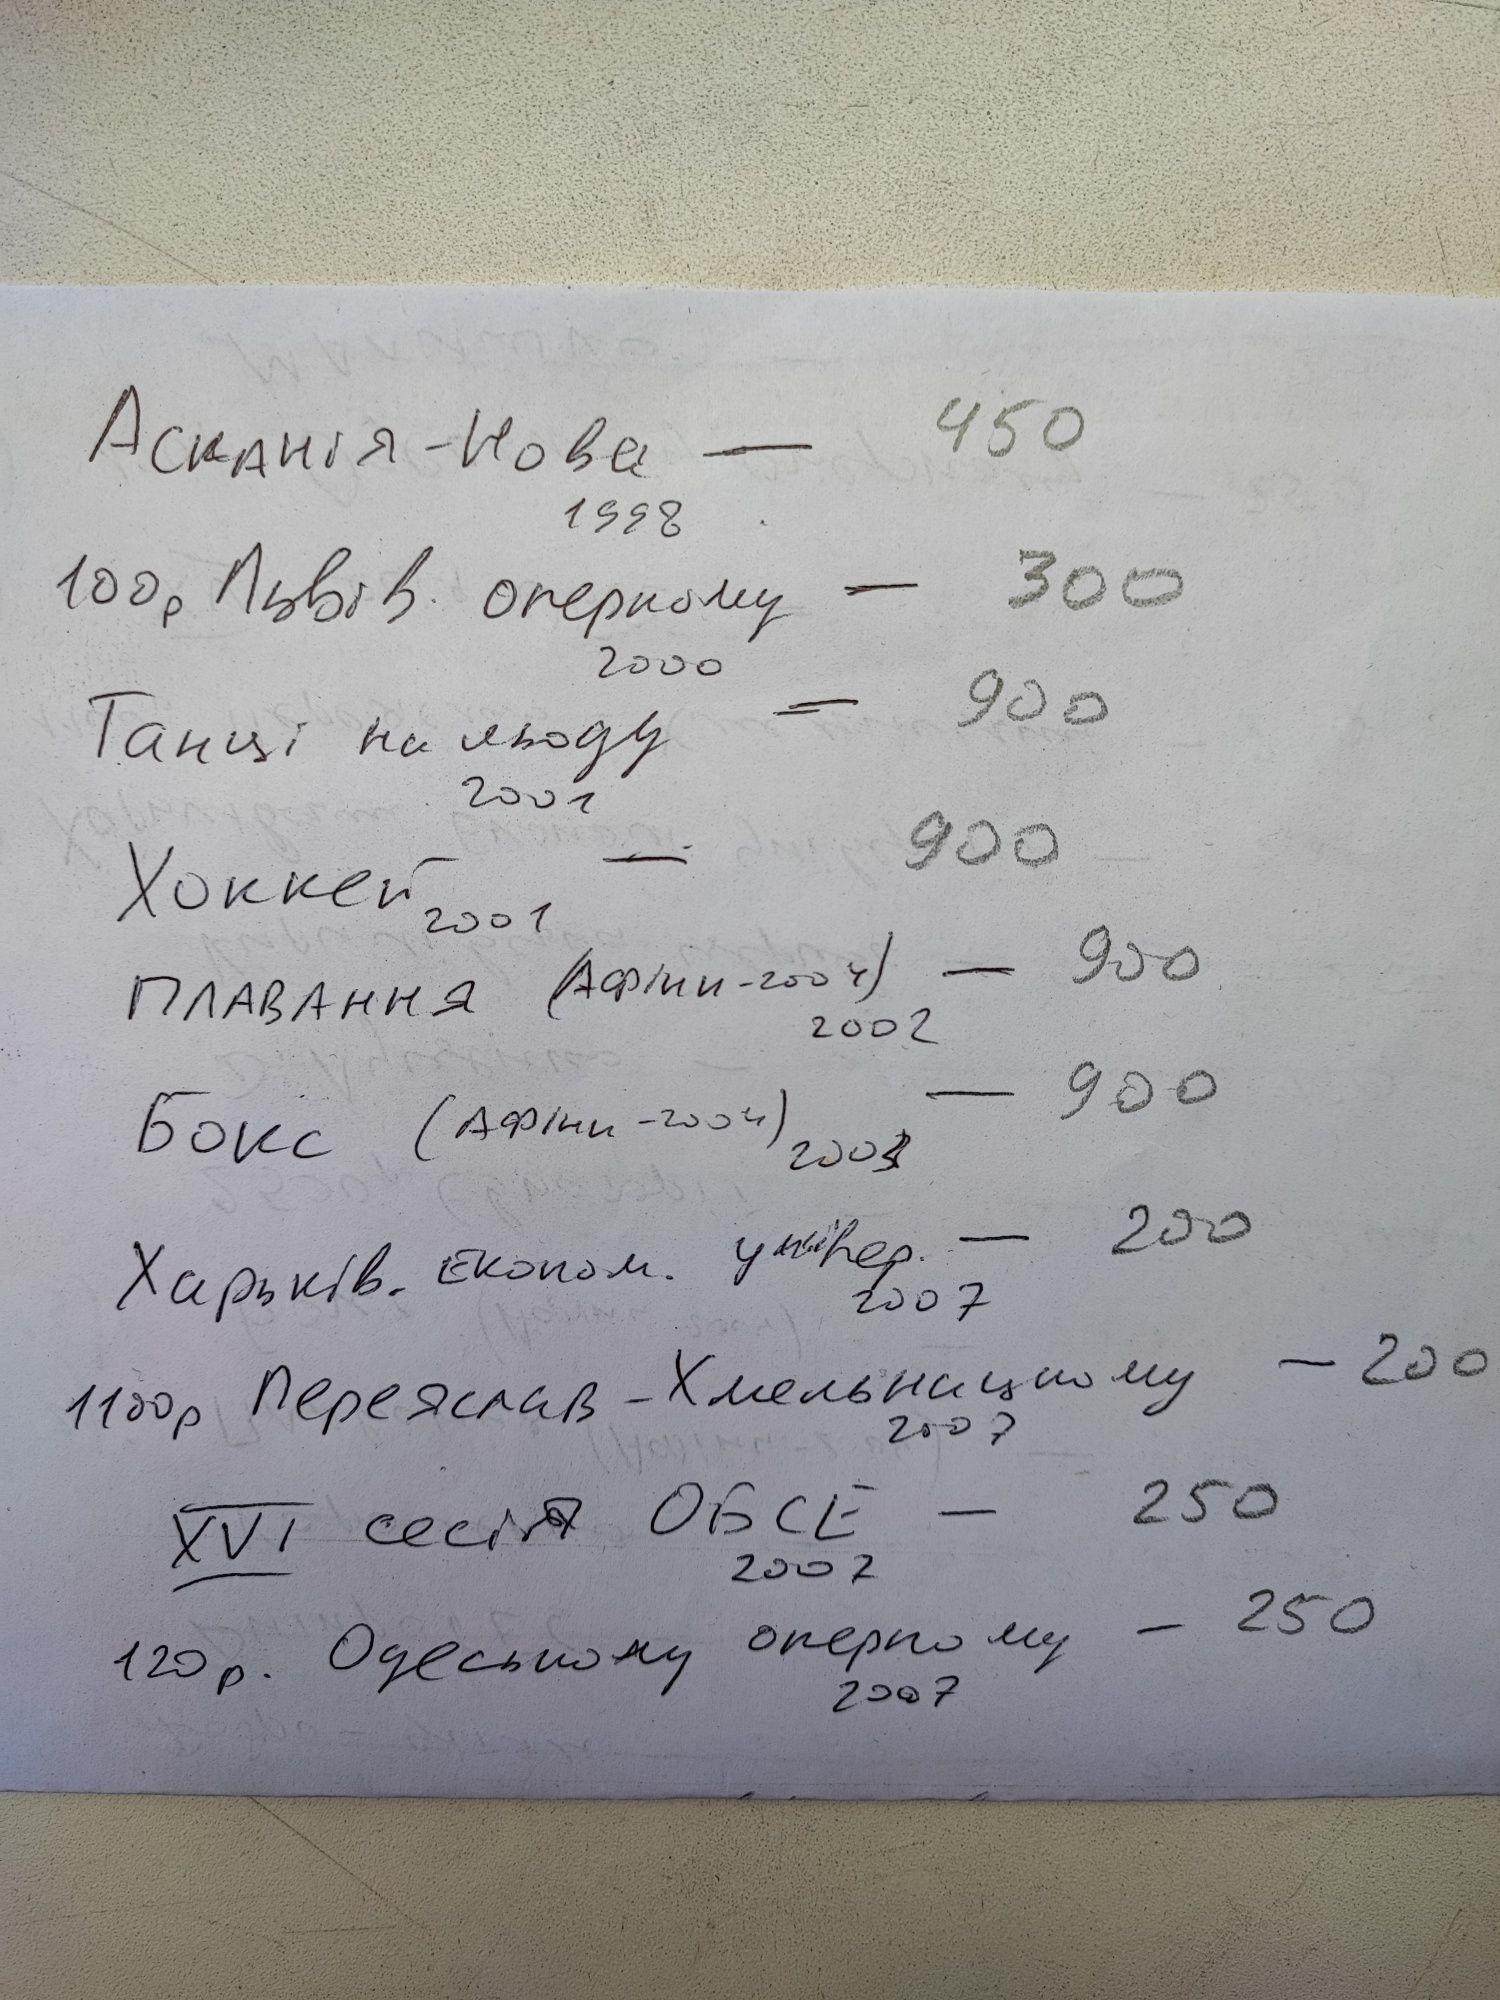 Асканія-Нова — 450
1998
100р Львів. оперному — 300
2000
Танці на льоду — 900
2001
Хоккей — 900
2001
Плавання (Афіни-2004) — 900
2002
Бокс (Афіни-2004) — 900
2003
Харьків. економ. універ. — 200
2007
1100р Переяслав-Хмельницькому — 200
2007
XVI сесія ОБСЕ — 250
2007
120р. Одеському оперному — 250
2007